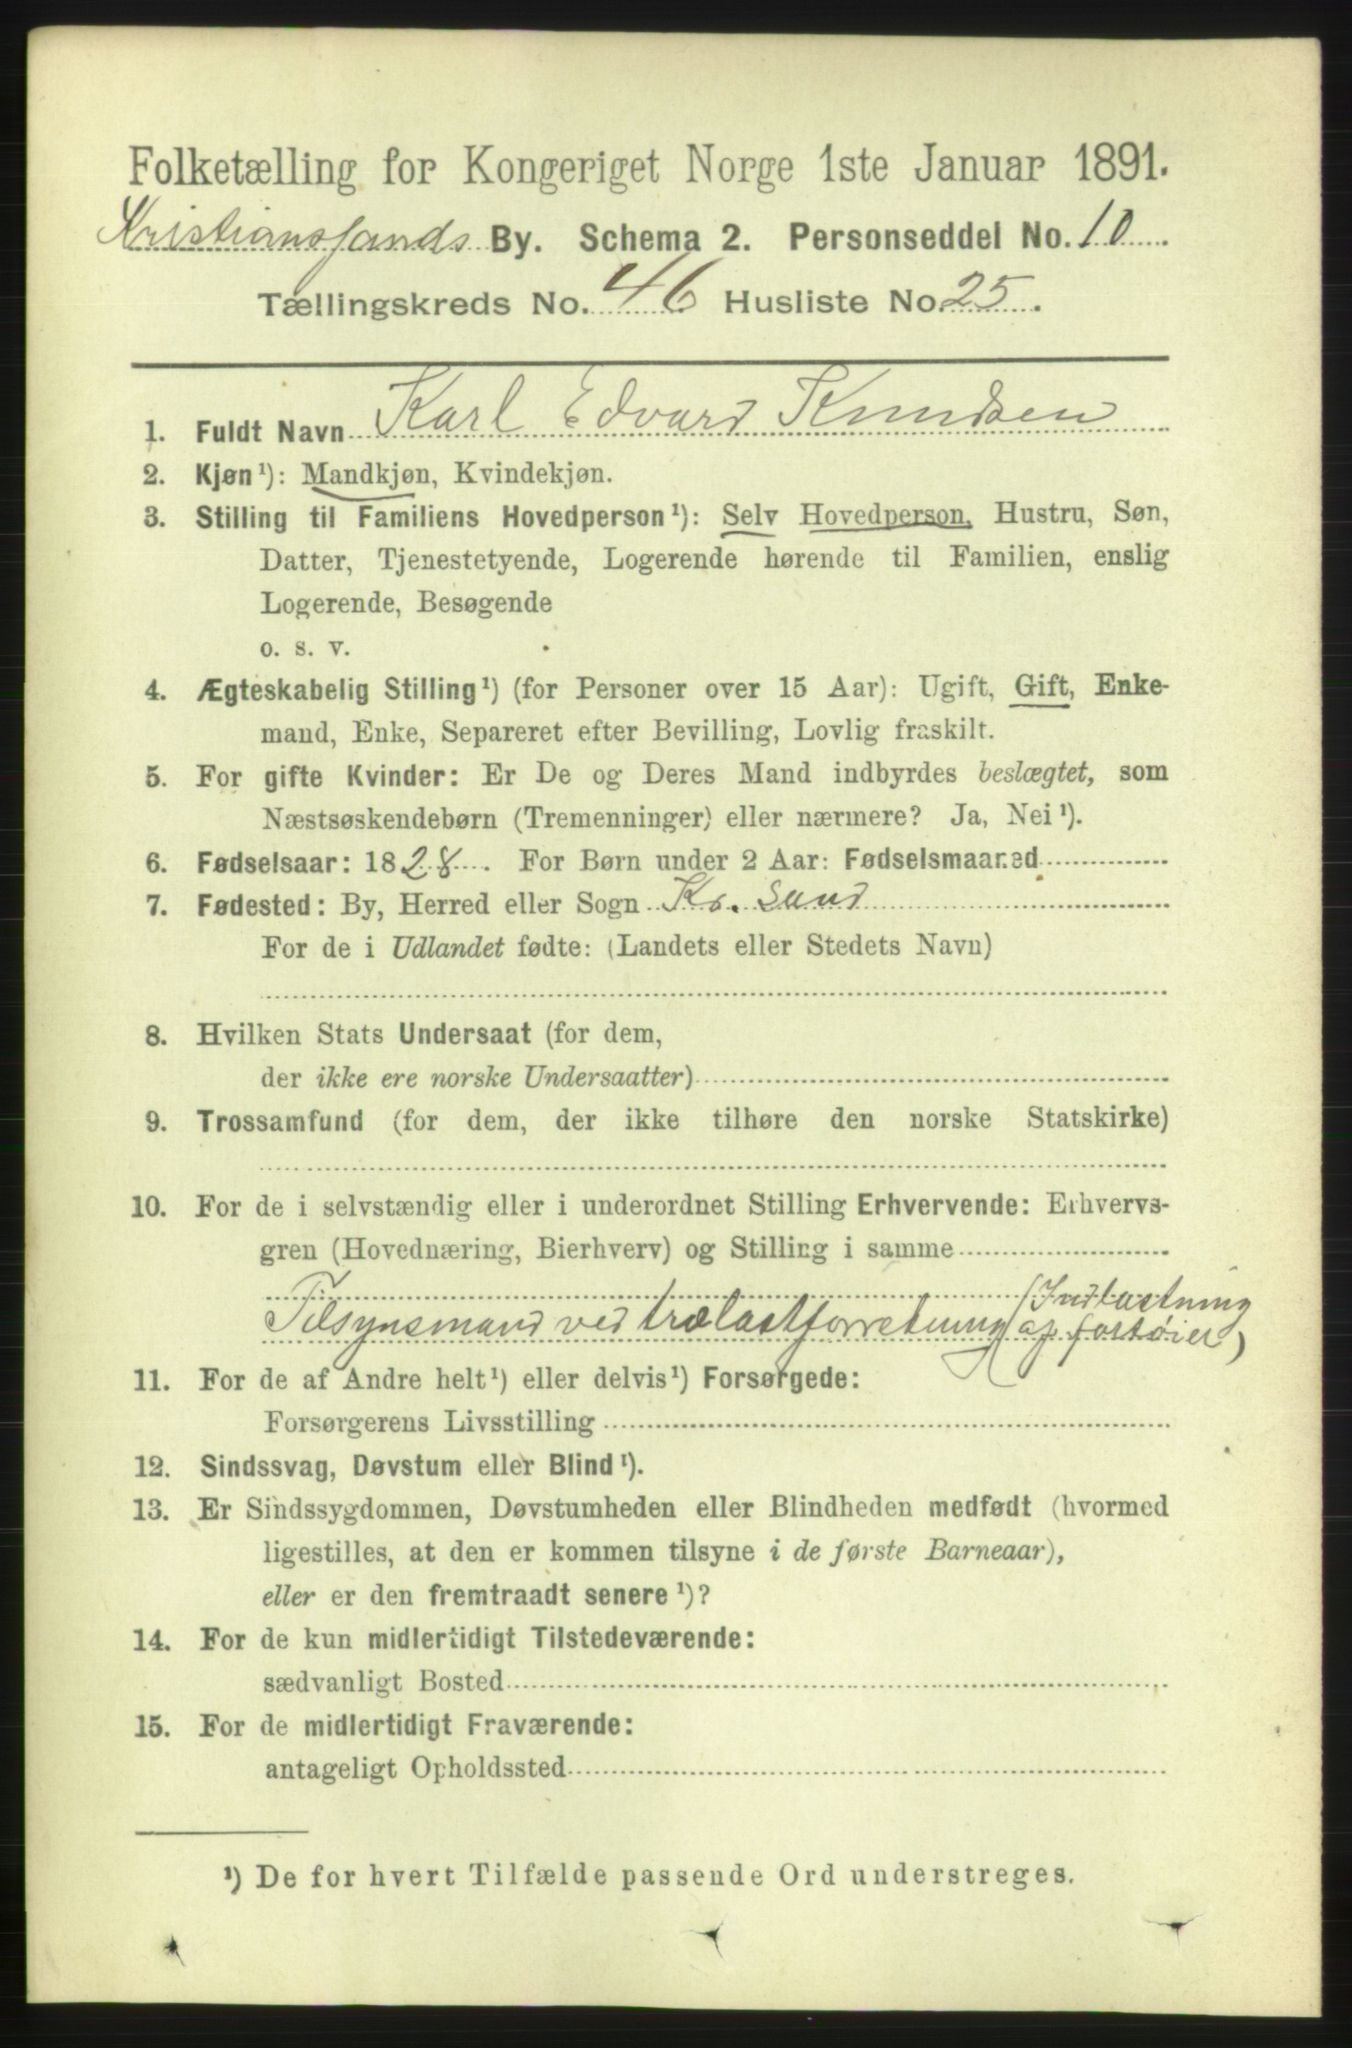 Folketælling for Kongeriget Norge 1ste Januar 1891.
Kristianssands By. Schema 2. Personseddel No. 10.
Tællingskreds No. 46 Husliste No. 25.
1. Fuldt Navn Karl Edvard Knudsen
2. Kjøn¹): Mandkjøn, Kvindekjøn.
3. Stilling til Familiens Hovedperson¹): Selv Hovedperson, Hustru, Søn,
Datter, Tjenestetyende, Logerende hørende til Familien, enslig
Logerende, Besøgende
o. s. v.
4. Ægteskabelig Stilling¹) (for Personer over 15 Aar): Ugift, Gift, Enke-
mand, Enke, Separeret efter Bevilling, Lovlig fraskilt.
5. For gifte Kvinder: Er De og Deres Mand indbyrdes beslægtet, som
Næstsøskendebørn (Tremenninger) eller nærmere? Ja, Nei¹).
6. Fødselsaar: 1828. For Børn under 2 Aar: Fødselsmaaned
7. Fødested: By, Herred eller Sogn Kr. sand
For de i Udlandet fødte: (Landets eller Stedets Navn)
8. Hvilken Stats Undersaat (for dem,
der ikke ere norske Undersaatter)
9. Trossamfund (for dem, der ikke tilhøre den norske Statskirke)
10. For de i selvstændig eller i underordnet Stilling Erhvervende: Erhvervs-
gren (Hovednæring, Bierhverv) og Stilling i samme
Tilsynsmand ved trælastforretning (Indlastning
af fartøier)
11. For de af Andre helt¹) eller delvis¹) Forsørgede:
Forsørgerens Livsstilling
12. Sindssvag, Døvstum eller Blind¹).
13. Er Sindssygdommen, Døvstumheden eller Blindheden medfødt (hvormed
ligestilles, at den er kommen tilsyne i de første Barneaar),
eller er den fremtraadt senere¹)?
14. For de kun midlertidigt Tilstedeværende:
sædvanligt Bosted
15. For de midlertidigt Fraværende:
antageligt Opholdssted
¹) De for hvert Tilfælde passende Ord understreges.